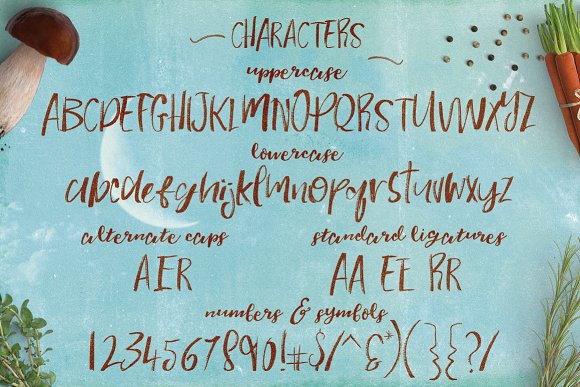 CHARACTERS
uppercase
ABCDEFGHIJKLMNOPQRSTUVWXYZ
lowercase
abcdefghijklmnopqrstuvwxyz
alternate caps
standard ligatures
AER
AA EE RR
numbers & symbols
1234567890!#$/^&*)({}{?/